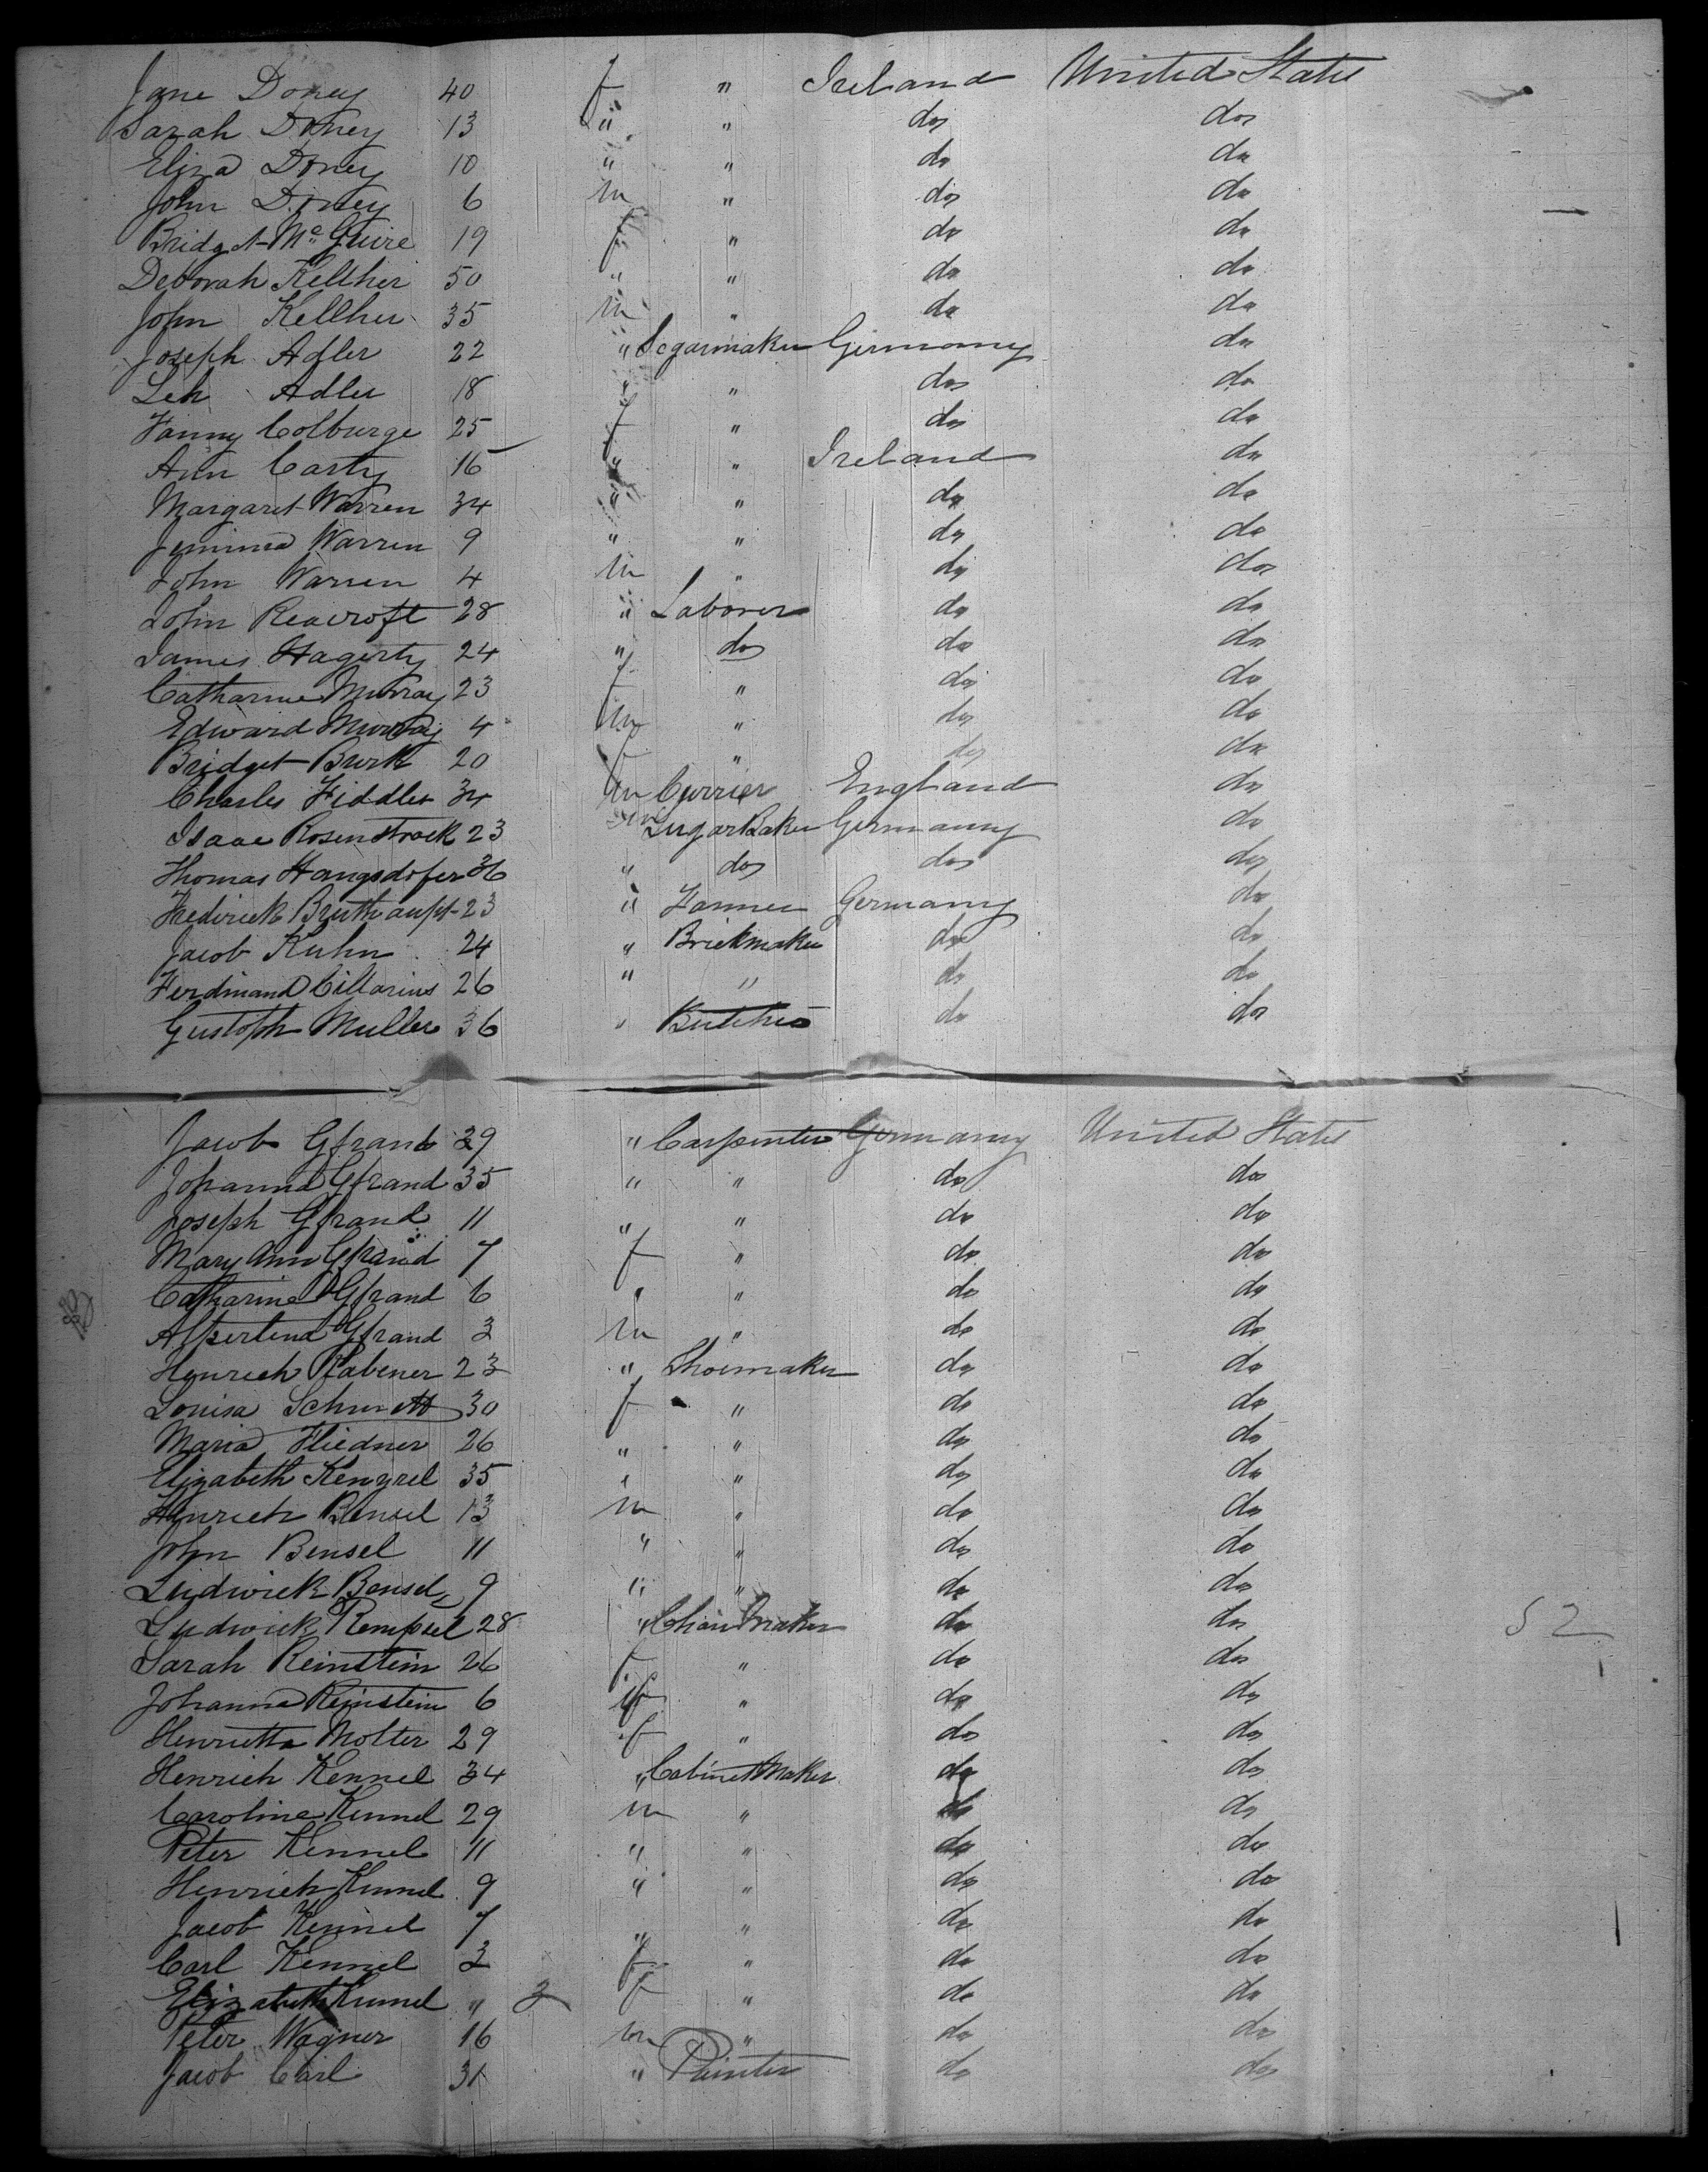 Jane Doney 40 f " Ireland United States
Sarah Doney 13 " " do do
Eliza Doney 10 " " do do
John Doney 6 m " do do
Bridget McGuire 19 f " do do
Deborah Kellher 50 " " do do
John Kellher 35 m " do do
Joseph Adler 22 " Segarmaker Germany do
Leh Adler 18 " " do do
Fanny Colburge 25 f " do do
Ann Carty 16 " " Ireland do
Margaret Warren 34 " " do do
Jemima Warren 9 " " do do
John Warren 4 m " do do
John Reacroft 28 " Laborer do do
James Hagerty 24 " do do do
Catharine Murray 23 f " do do
Edward Murray 4 m " do do
Bridget Burk 20 f " do do
Charles Fiddler 34 m Currier England do
Isaac Rosenstrock 23 m Sugar Baker Germany do
Thomas Hangsdofer 36 " do do do
Frederick Bruthaupt 23 " Farmer Germany do
Jacob Kuhn 24 " Brickmaker do do
Ferdinand Cillarius 26 " " do do
Gustoph Muller 36 " Butcher do do
Jacob Gfrand 39 " Carpenter Germany United States
Johanna Gfrand 35 " " do do
Joseph Gfrand 11 " " do do
Mary Ann Gfrand 7 f " do do
Catharine Gfrand 6 " " do do
Alpertina Gfrand 3 m " do do
Henrich Rabener 23 " Shoemaker do do
Louisa Schmitt 30 f " do do
Maria Fliedner 26 " " do do
Elizabeth Kenzrel 35 " " do do
Henrich Bensel 13 m " do do
John Bensel 11 " " do do
Ludwick Bensel 9 " " do do
Ludwick Rempsel 28 " Chair Maker do do 52
Sarah Reinstein 26 f " do do
Johanna Reinstein 6 f " do do
Henrietta Molter 29 f " do do
Henrich Kennel 34 " Cabinet Maker do do
Caroline Kennel 29 m " do do
Peter Kennel 11 " " do do
Henrich Kennel 9 " " do do
Jacob Kennel 7 " " do do
Carl Kennel 3 f " do do
Elizabeth Kennel " 2 f " do do
Peter Wagner 16 m " do do
Jacob Carl 31 " Painter do do